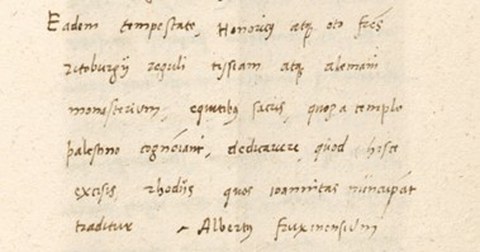 Eadem tempestate, Honoricus atque oto fratres
ritoburgij reguli tyssiam atque alemani
monasterium, equitibus sacris, quos a templo
palestino cognominant, dedicavere, quod hisce
excisis, rhodijs quos ioannitas nuncupant
traditur Albertus fruxinensium